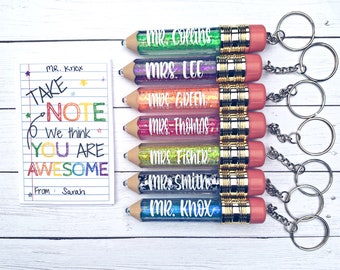 MR. Knox
TAKE
NOTE
We think
YOU ARE
AWESOME
From: Sarah
MR. COLLINS
MRS. LEE
MRS. GREEN
MRS. THOMAS
MRS. FISHER
MR. SMITH
MR. KNOX